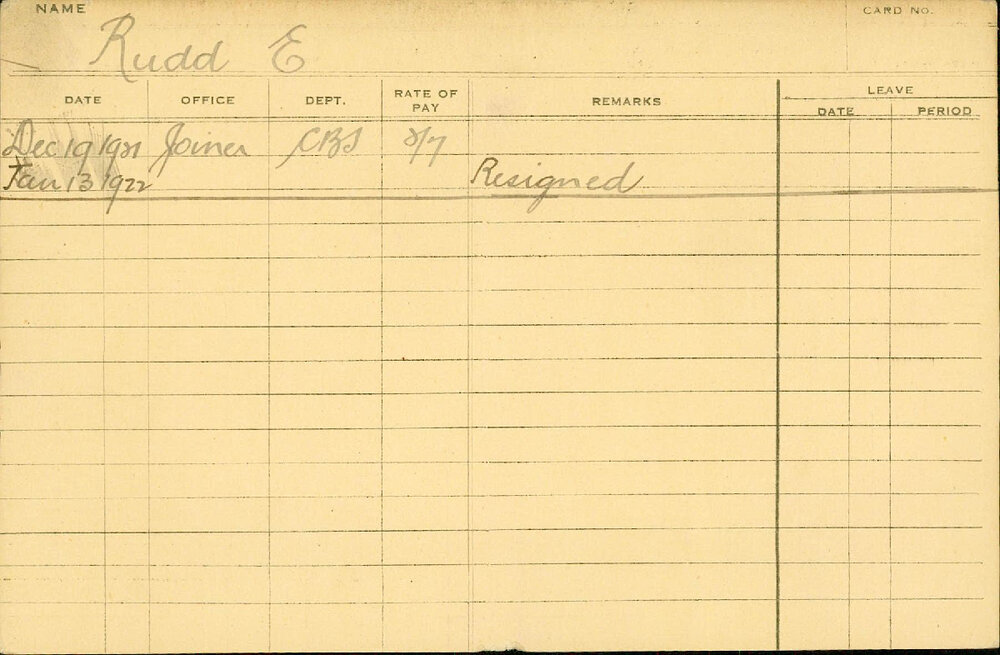 NAME
CARD NO.
Rudd E
DATE OFFICE DEPT. RATE OF PAY REMARKS LEAVE
DATE PERIOD
Dec 19 1921 Joiner CBS 2/7
Jan 13 1922 Resigned